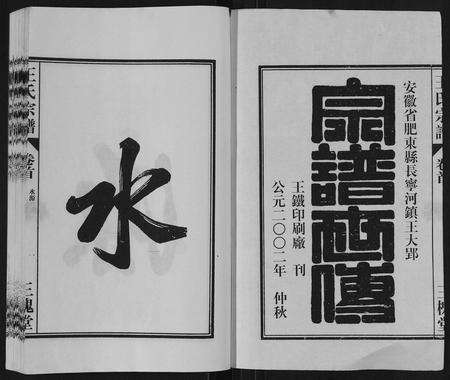 王氏宗譜 卷首 三槐堂
安徽省肥東縣長寧河鎮王大郢
宗譜世傳
王鐵印刷廠 刊
公元二〇〇二年 仲秋
水
王氏宗譜 卷首 水源 三槐堂